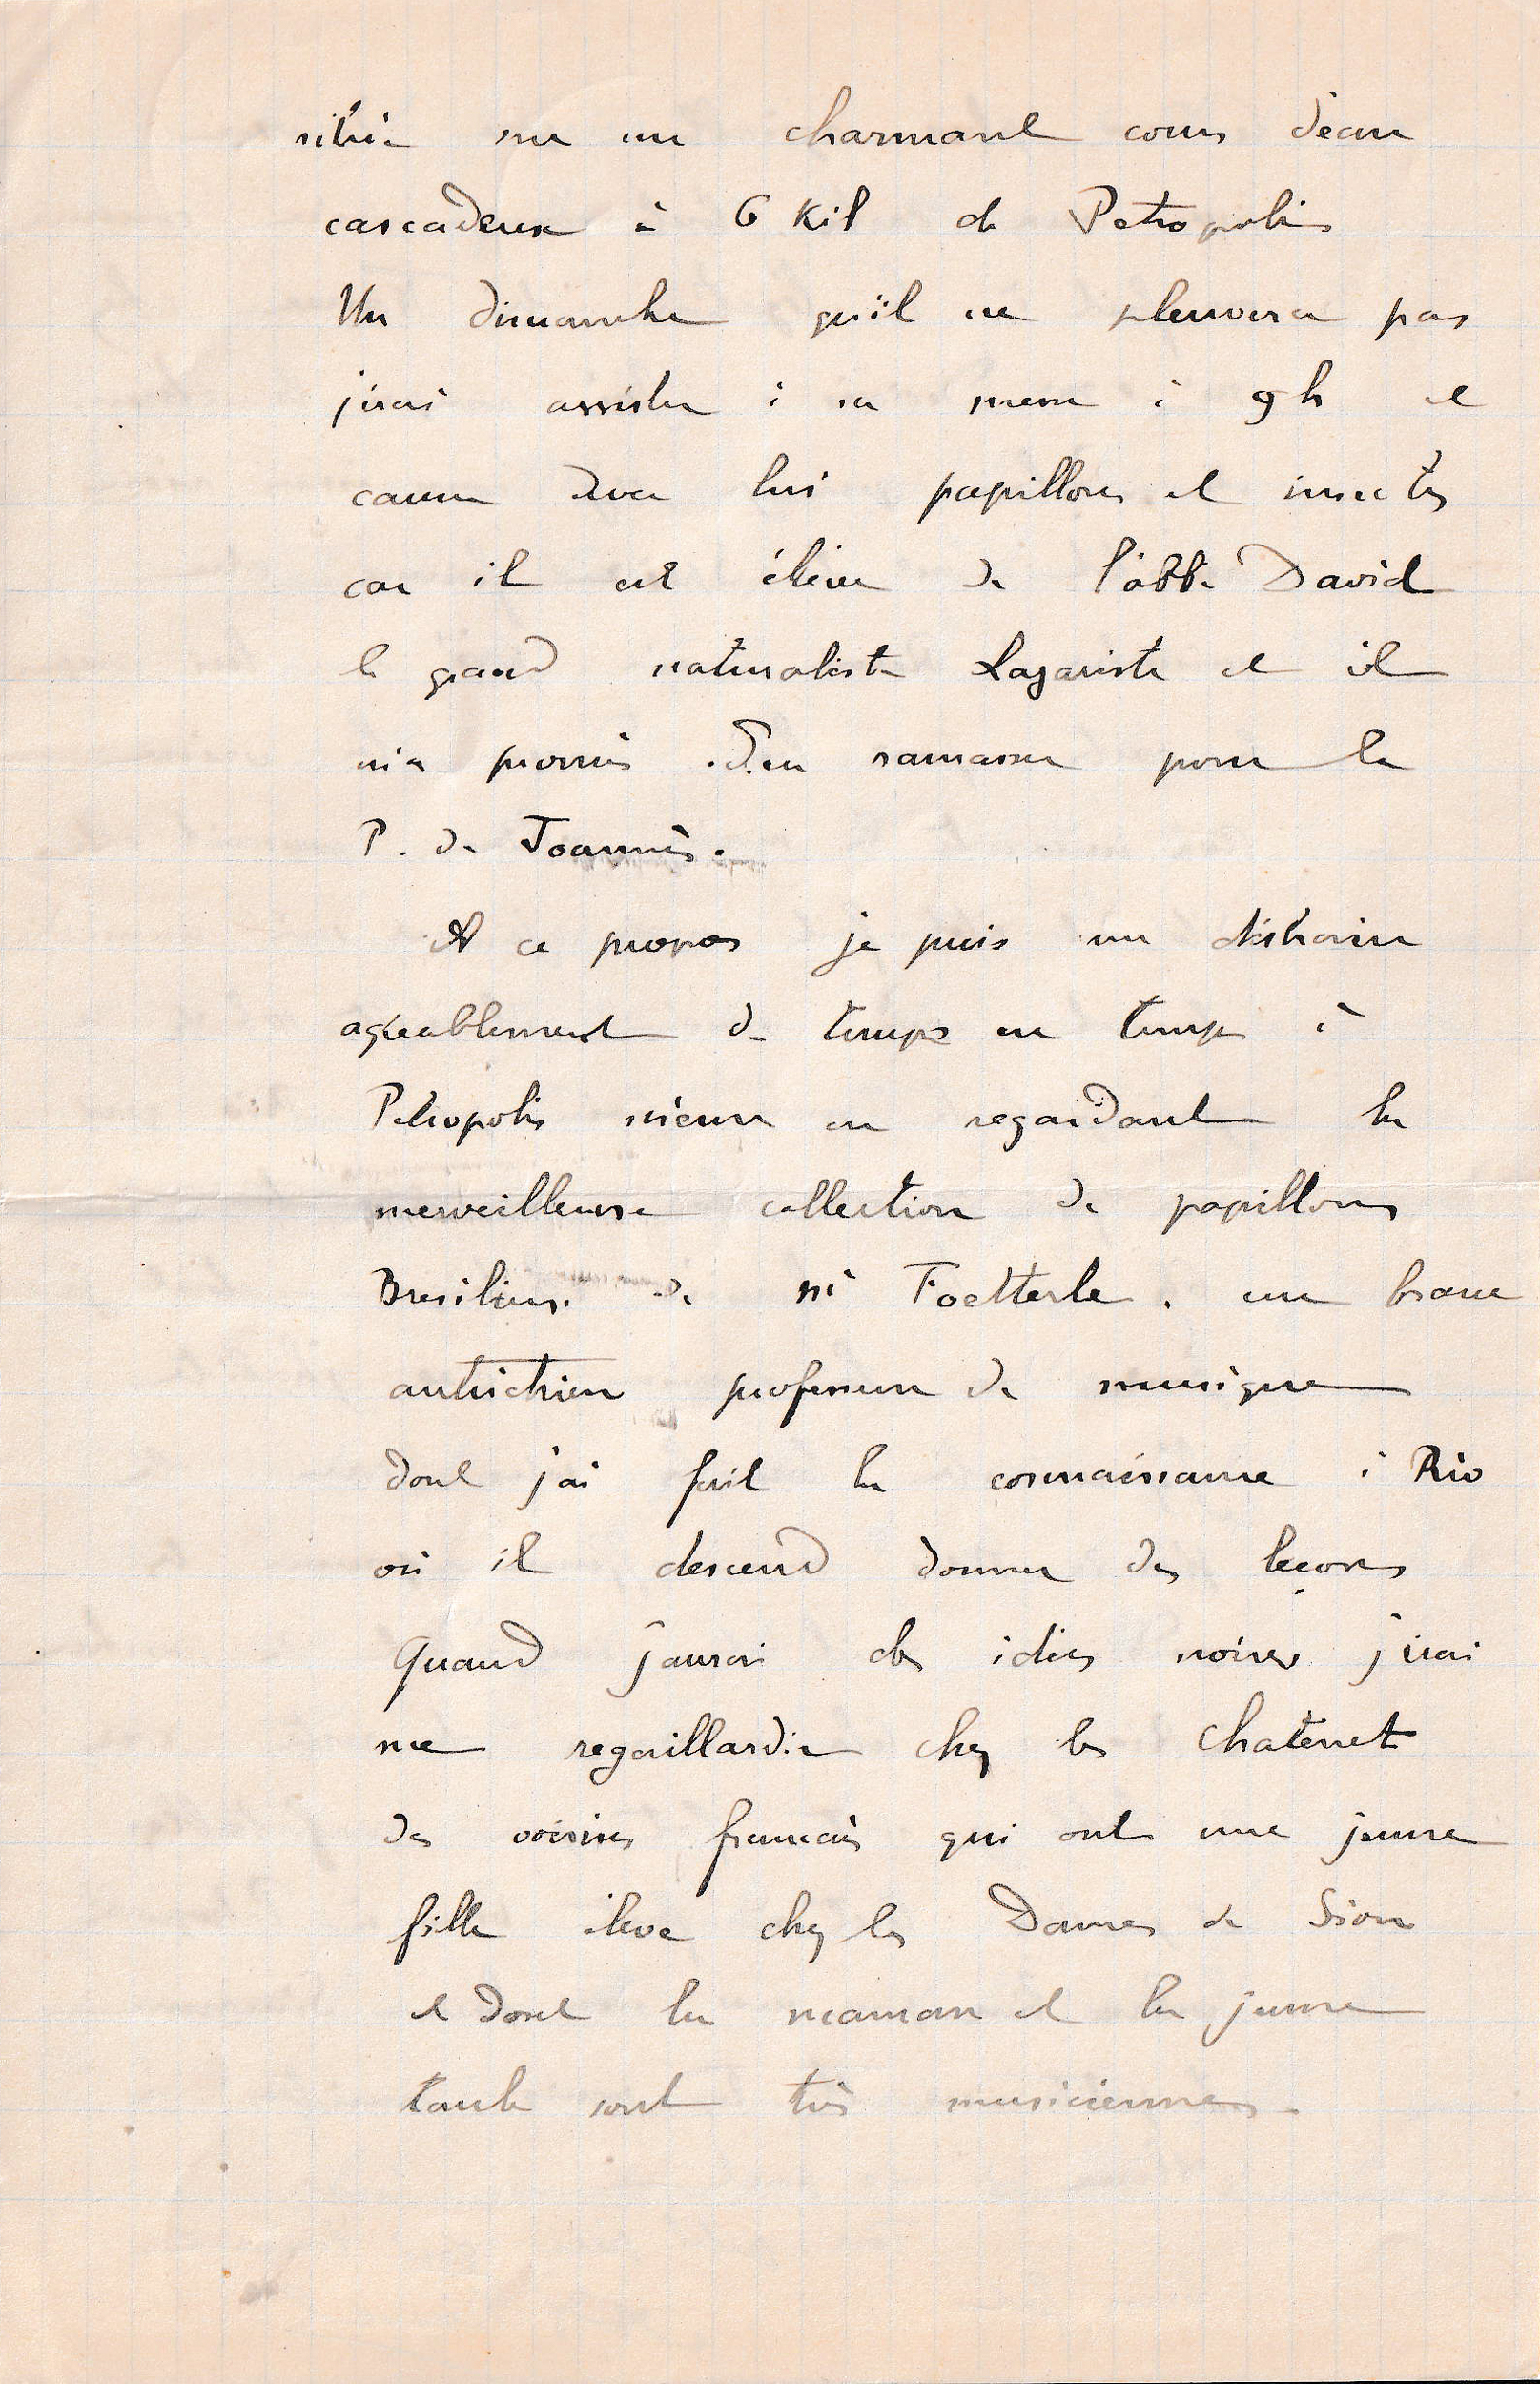 située sur un charmant cours d'eau
cascadeux à 6 Kil de Petropolis
Un dimanche qu'il ne pleuvera pas
j'irai assister à sa messe à 9h et
causer avec lui papillons et insectes
car il est élève de l'abbé David
le grand naturaliste Lazariste et il
m'a promis d'en ramasser pour le
P. de Joannis.
A ce propos je puis me distraire
agréablement de temps en temps à
Petropolis même en regardant la
merveilleuse collection de papillons
Bresiliens de Mr Foetterle. un brave
autrichien professeur de musique
dont j'ai fait la connaissance à Rio
où il descend donner des leçons
Quand j'aurai des idées noires j'irai
me regaillardir chez les Chatenet
des voisins français qui ont une jeune
fille élève chez les Dames de Sion
et dont la maman et la jeune
tante sont très musiciennes.